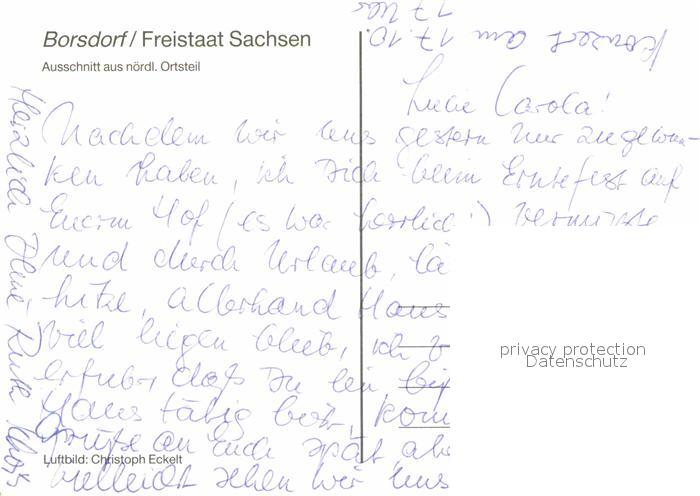 Borsdorf / Freistaat Sachsen
Ausschnitt aus nördl. Ortsteil
Konzert am 17.10.
17 Uhr
Liebe Carola!
Nachdem wir uns gestern nur zugewun-
ken haben, ich Dich beim Erntefest auf
Eurem Hof (es war herrlich!) vermisste
und durch Urlaub,
hitze, allerhand Haus
viel liegen blieb, ich
erfuhr, daß Du im
Haus tätig bist, kom
Grüße an Euch spät
vielleicht sehen wir uns
Herzlich Deine
Luftbild: Christoph Eckelt
privacy protection
Datenschutz